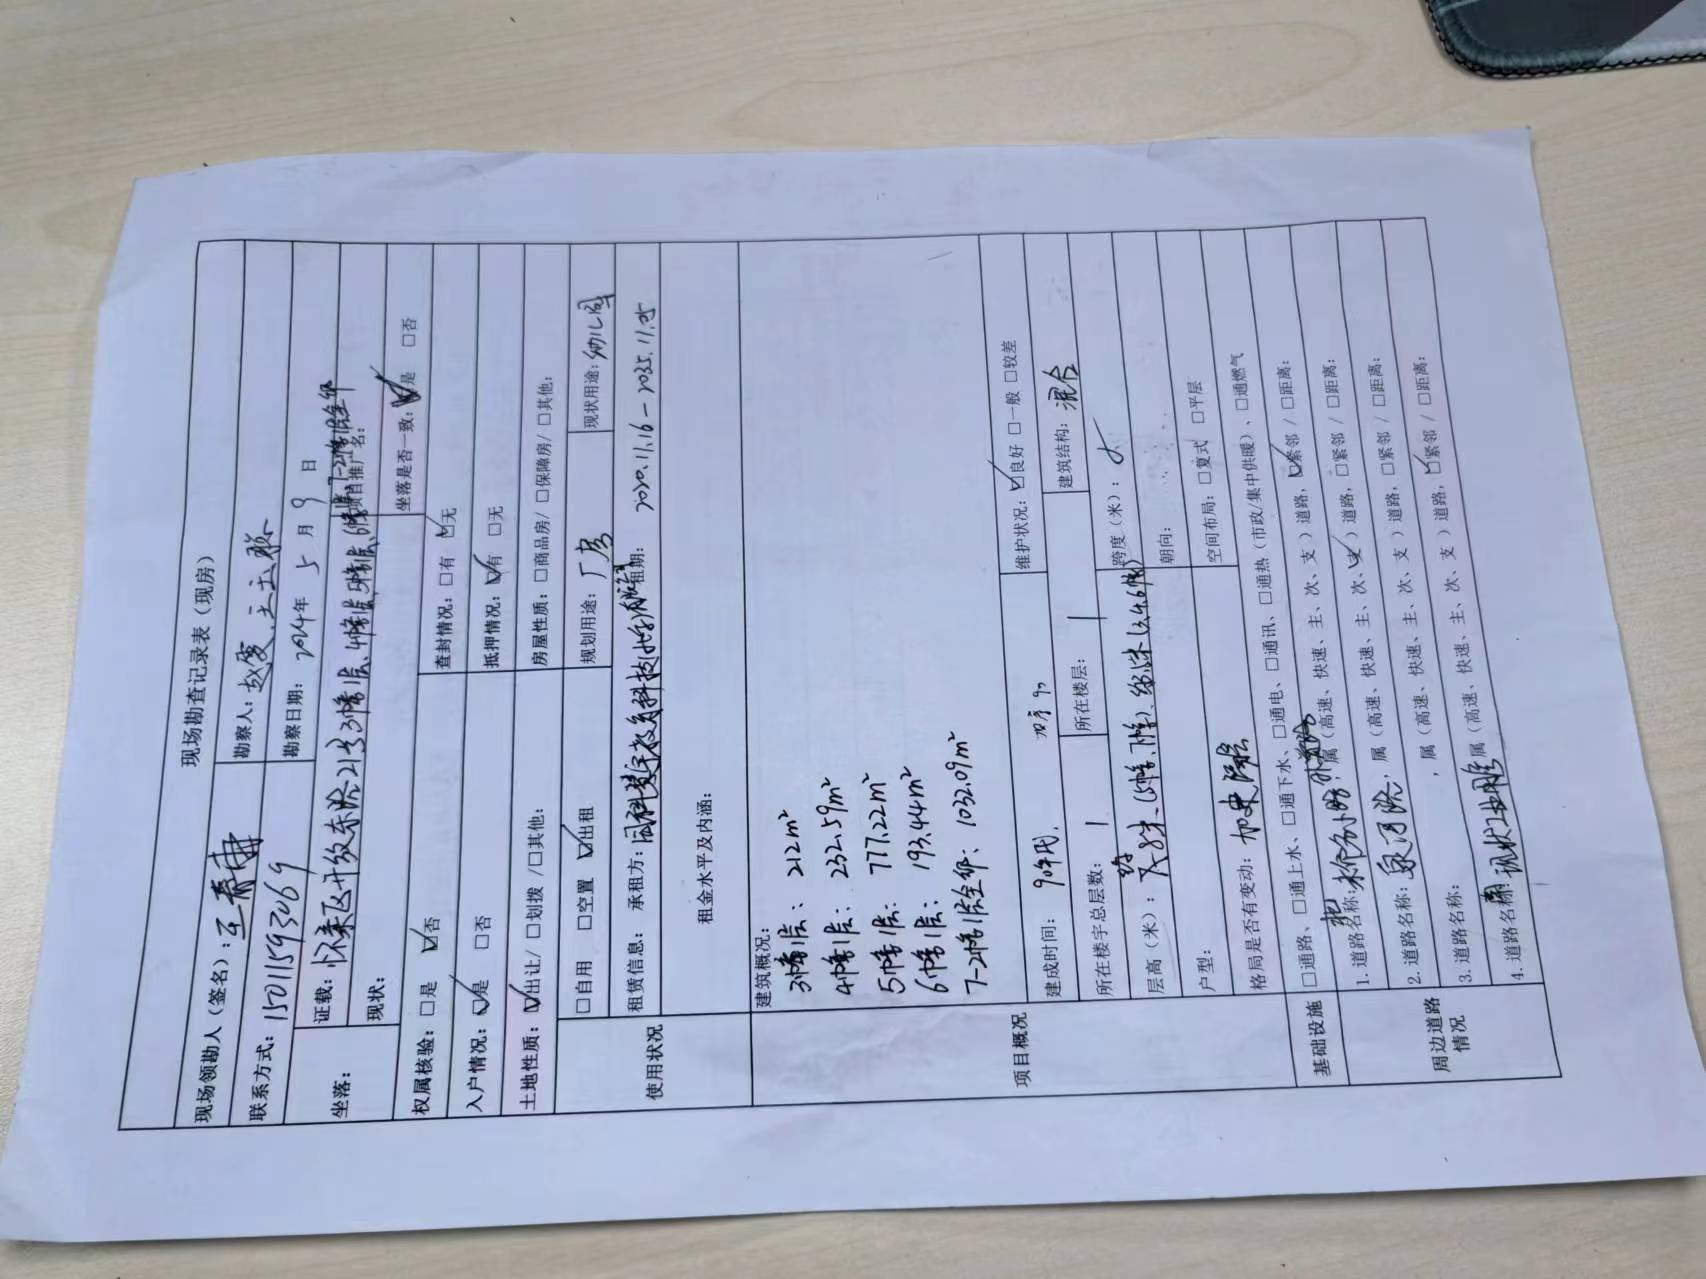 现场勘查记录表（现房）
现场领勘人（签名）：王春 勘察人：赵雯 王玉
联系方式：15011593069 勘察日期：2024年 5 月 9 日
坐落： 证载：怀柔区开放东路21号3幢1层、4幢1层、5幢1层、6幢1层、7-2幢1层全部
现状： 项目推广名：
权属核验：□是 ☑否 坐落是否一致：☑是 □否
入户情况：☑是 □否 查封情况：□有 ☑无
抵押情况：☑有 □无
土地性质：☑出让/ □划拨 /□其他： 房屋性质：□商品房/ □保障房/ □其他：
使用状况 □自用 □空置 ☑出租 规划用途：厂房 现状用途：幼儿园
租赁信息： 承租方：国科数字教育科技 租期： 2020.11.16－2035.11.15
租金水平及内涵：
项目概况 建筑概况：
3幢1层：212m²
4幢1层：232.59m²
5幢1层：777.22m²
6幢1层：193.44m²
7-2幢1层全部：1032.09m²
建成时间：90年代 维护状况：☑良好 □一般 □较差
所在楼宇总层数：1 所在楼层：1 建筑结构：混合
层高（米）： 跨度（米）：
户型： 朝向：
格局是否有变动： 空间布局：□复式 □平层
基础设施 □通路、□通上水、□通下水、□通电、□通讯、□通热（市政/集中供暖）、□通燃气
周边道路情况 1.道路名称： 属（高速、快速、主、次、支）道路，☑紧邻 / □距离：
2.道路名称： ，属（高速、快速、主、次、支）道路，□紧邻 / □距离：
3.道路名称： ，属（高速、快速、主、次、支）道路，□紧邻 / □距离：
4.道路名称： 属（高速、快速、主、次、支）道路，☑紧邻 / □距离：